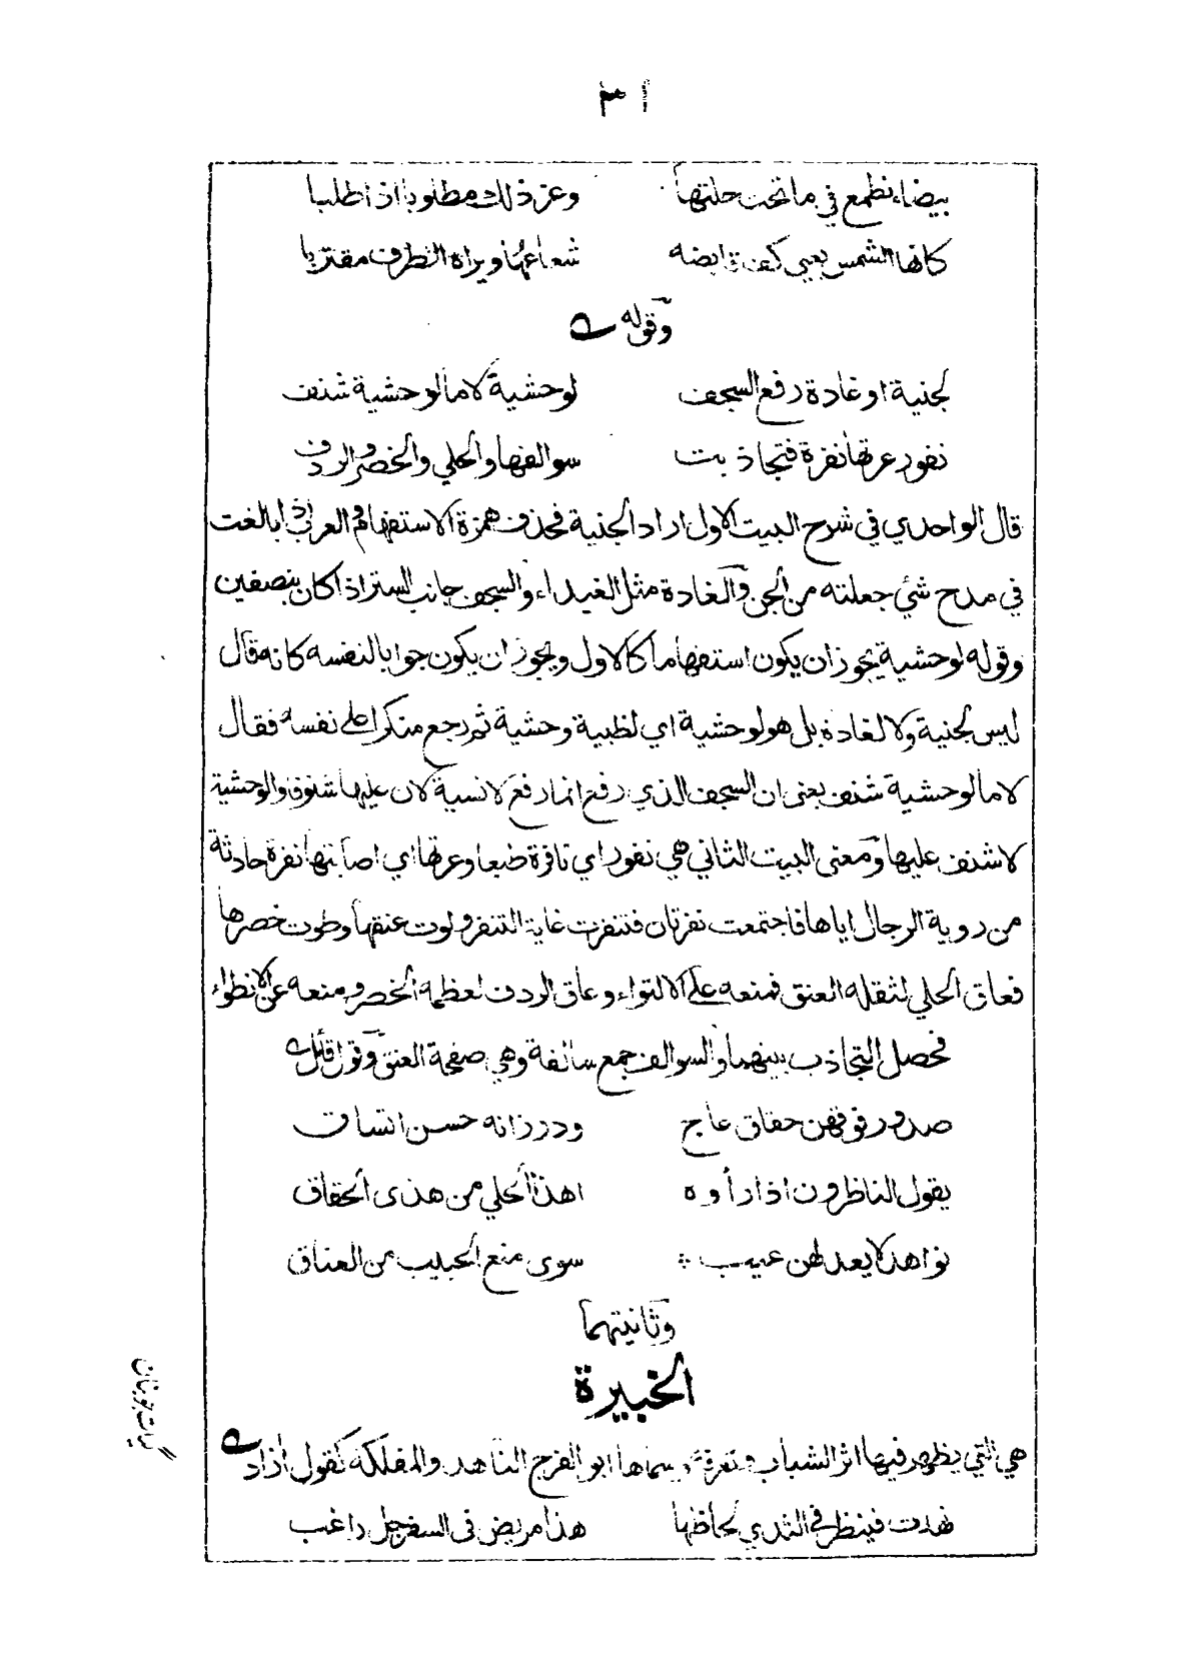 بيضاء تطمع في ما تحت حلتها وعز ذلك مطلوبا اذا طلبا
كانها الشمس يعيي كف قابضه شعاعها ويراه الطرف مقتربا
وقوله
لجنية او غادة رفع السجف لوحشية لا ما لوحشية شنف
نفور عرتها نفرة فتجاذبت سوالفها والحلي والخصر والردف
قال الواحدي في شرح البيت الاول اراد الجنية فحذف همزة الاستفهام والعرب اذا بالغت
في مدح شئ جعلته من الجن والغادة مثل الغيداء والسجف جانب الستر اذا كان بنصفين
وقوله لوحشية يجوز ان يكون استفهاما كالاول ويجوز ان يكون جوابا لنفسه كانه قال
ليس لجنية ولا لغادة بل هو لوحشية اي لظبية وحشية ثم رجع منكرا على نفسه فقال
لا ما لوحشية شنف يعنى ان السجف الذي رفع انما رفع لانسية لان عليها شنوفا والوحشية
لا شنف عليها ومعنى البيت الثاني هي نفور اي نافرة طبعا وعرتها اي اصابتها نفرة حادثة
من روية الرجال اياها فاجتمعت نفرتان فتنفرت غاية التنفر ولوت عنقها وطوت خصرها
فعاق الحلي لثقله العنق فمنعه على الالتواء وعاق الردف لعظمه الخصر ومنعه عن الانطواء
فحصل التجاذب بينهما والسوالف جمع سالفة وهي صفحة العنق وقول قائل
صدور فوقهن حقاق عاج ودر زانه حسن اتساق
يقول الناظرون اذا رأوه اهذا الحلي من هذى الحقاق
نواهد لا يعد لهن عيب سوى منع الحبيب من العناق
وثانيتهما
الخبيرة
هي التي يظهر فيها اثر الشباب وتعرفه سماها ابو الفرج الناهد والمفلكة كقول آزاد
نهدت فينظر في الثدي لحاظها هذا مريض فى السفرجل راغب